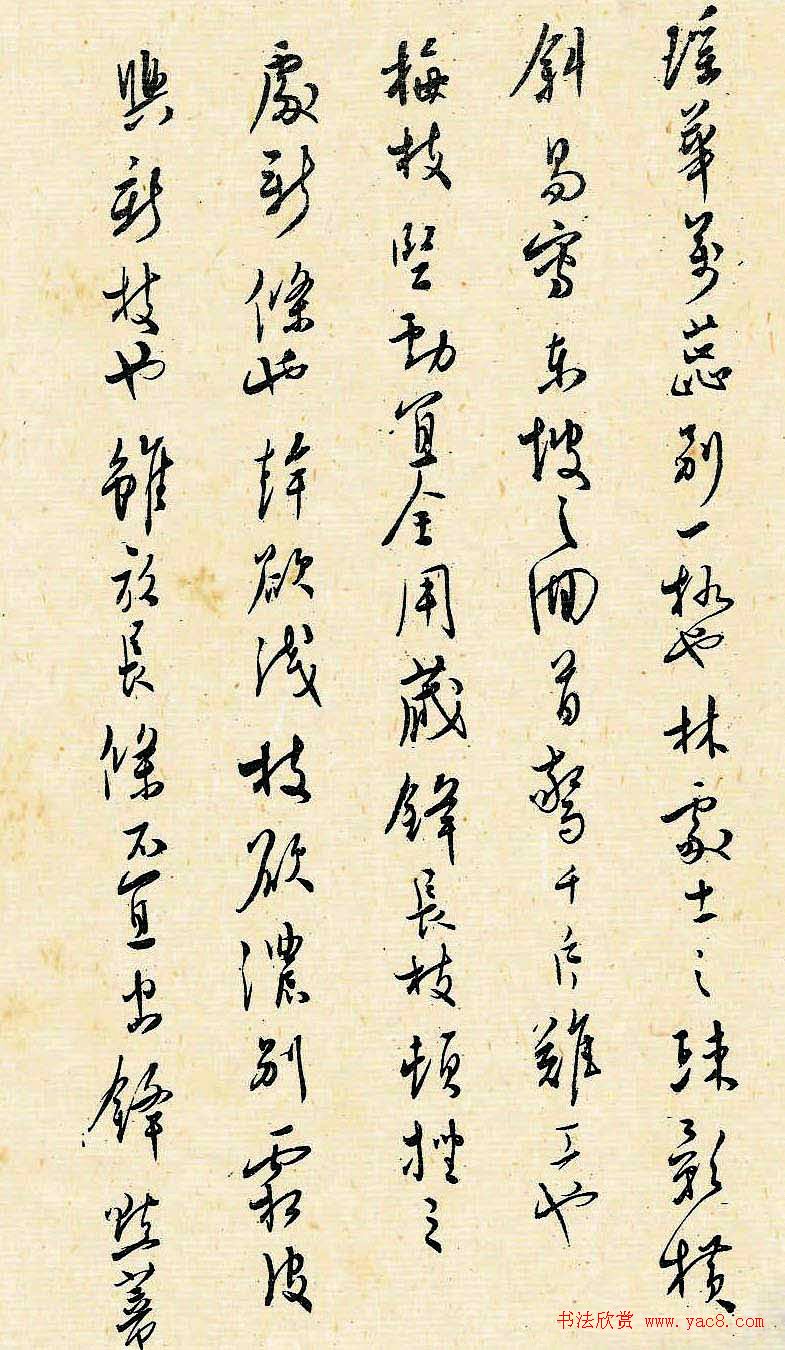 瑶華萬蕊別一格也林處士之踈影橫
斜易寫東坡之回首驚千片難工也
梅枝竪動宜全用藏鋒長枝頓挫之
處新條也幹欲淺枝欲濃別霜皮
與新枝也雖放長條不宜出鋒點蒂
书法欣赏 www.yac8.com